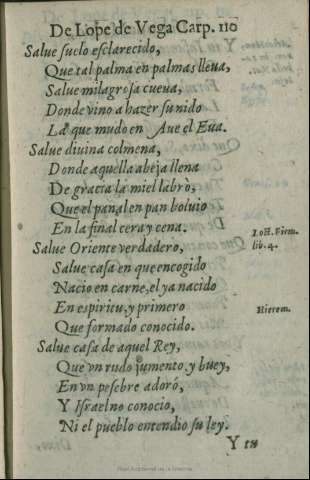 De Lope de Vega Carp. 110
Salue suelo esclarecido,
Que tal palma en palmas lleua,
Salue milagrosa cueua,
Donde vino a hazer su nido
La que mudo en Aue el Eua.
Salue diuina colmena,
Donde aquella abeja llena
De gracia la miel labrò,
Que el panal en pan boluio
En la final cera y cena.
Salue Oriente verdadero,
lib. 4.
Salue casa en que encogido
Nacio en carne, el ya nacido
En espiritu, y primero
Hierem.
Que formado conocido.
Salue casa de aquel Rey,
Que vn rudo jumento, y buey,
En vn pesebre adorò,
Y Israel no conocio,
Ni el pueblo entendio su ley.